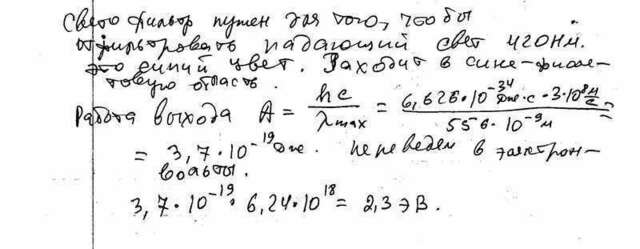 Светофильтр нужен для того, чтобы
отфильтровать падающий свет 410нм.
это синий цвет. Входит в сине-фиоле-
товую область.
Работа выхода A = hc / λmax = 6,626·10^-34 Дж·с·3·10^8 м/с / 556·10^-9 м =
= 3,7·10^-19 Дж. Переведем в электрон-
вольты.
3,7·10^-19·6,24·10^18 = 2,3 эВ.